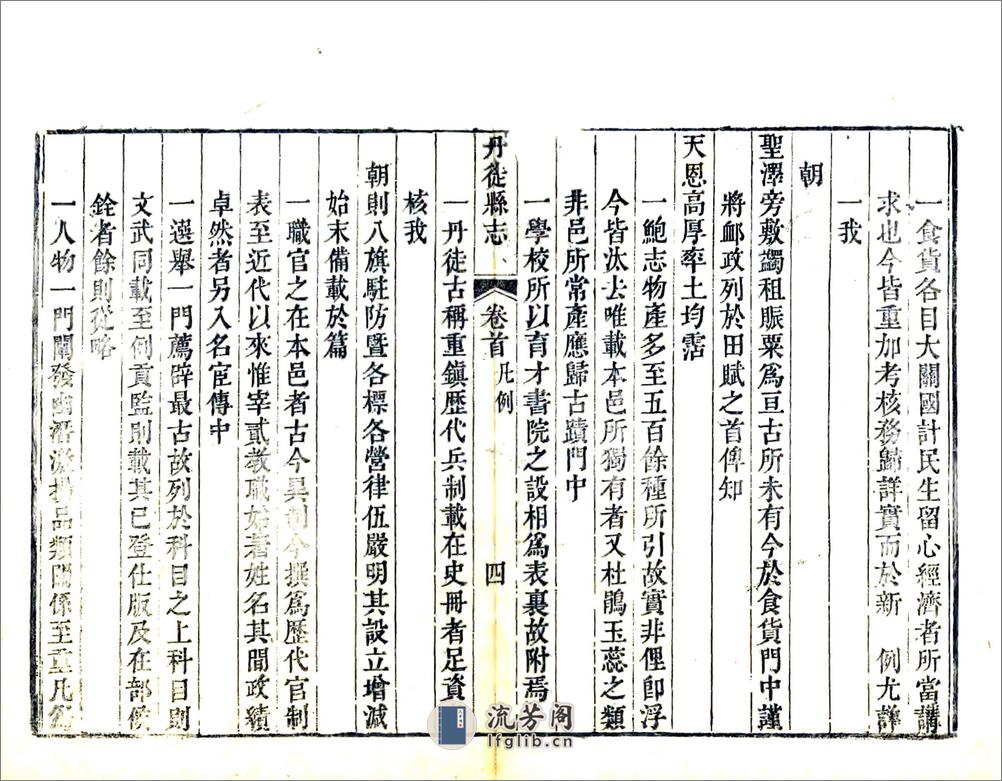 一食貨各目大關國計民生留心經濟者所當講
求也今皆重加考核務歸詳實而於新 例尤詳
一我
朝
聖澤旁敷蠲租賑粟爲亘古所未有今於食貨門中謹
將卹政列於田賦之首俾知
天恩高厚率土均霑
一鮑志物產多至五百餘種所引故實非俚卽浮
今皆汰去唯載本邑所獨有者又杜鵑玉蕊之類
非邑所常產應歸古蹟門中
一學校所以育才書院之設相爲表裏故附焉
丹徒縣志 卷首 凡例 四
一丹徒古稱重鎮歷代兵制載在史冊者足資
核我
朝則八旗駐防暨各標各營律伍嚴明其設立增減
始末備載於篇
一職官之在本邑者古今異制今撰爲歷代官制
表至近代以來惟宰貳教職始著姓名其間政績
卓然者另入名宦傳中
一選舉一門薦辟最古故列於科目之上科目則
文武同載至例貢監則載其已登仕版及在部候
銓者餘則從略
一人物一門闡發幽潛激揚品類關係至重凡舊
流芳阁
lfglib.cn